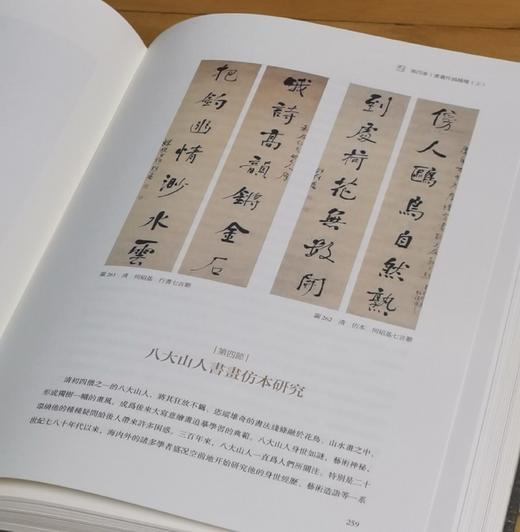 第四章｜書畫
哦詩高韻鏘金石
把釣幽情渺水雲
圖261 清 何紹基 行書七言聯
傍人鷗鳥自然熟
到處荷花無數開
圖262 清 仿本 何紹基七言聯
第四節
八大山人書畫仿本研究
清初四僧之一的八大山人，將其狂放不羈、恣縱雄奇的書法綫條融於花鳥、山水畫之中，
形成獨樹一幟的畫風，成爲後來大寫意繪畫追摹學習的典範。八大山人身世如謎，藝術神秘，
環繞他的種種疑問給後人帶來許多困惑。三百年來，八大山人一直爲人們所關注。特別是二十
世紀七八十年代以來，海內外的諸多學者盛況空前地開始研究他的身世經歷、藝術造詣等一系
259